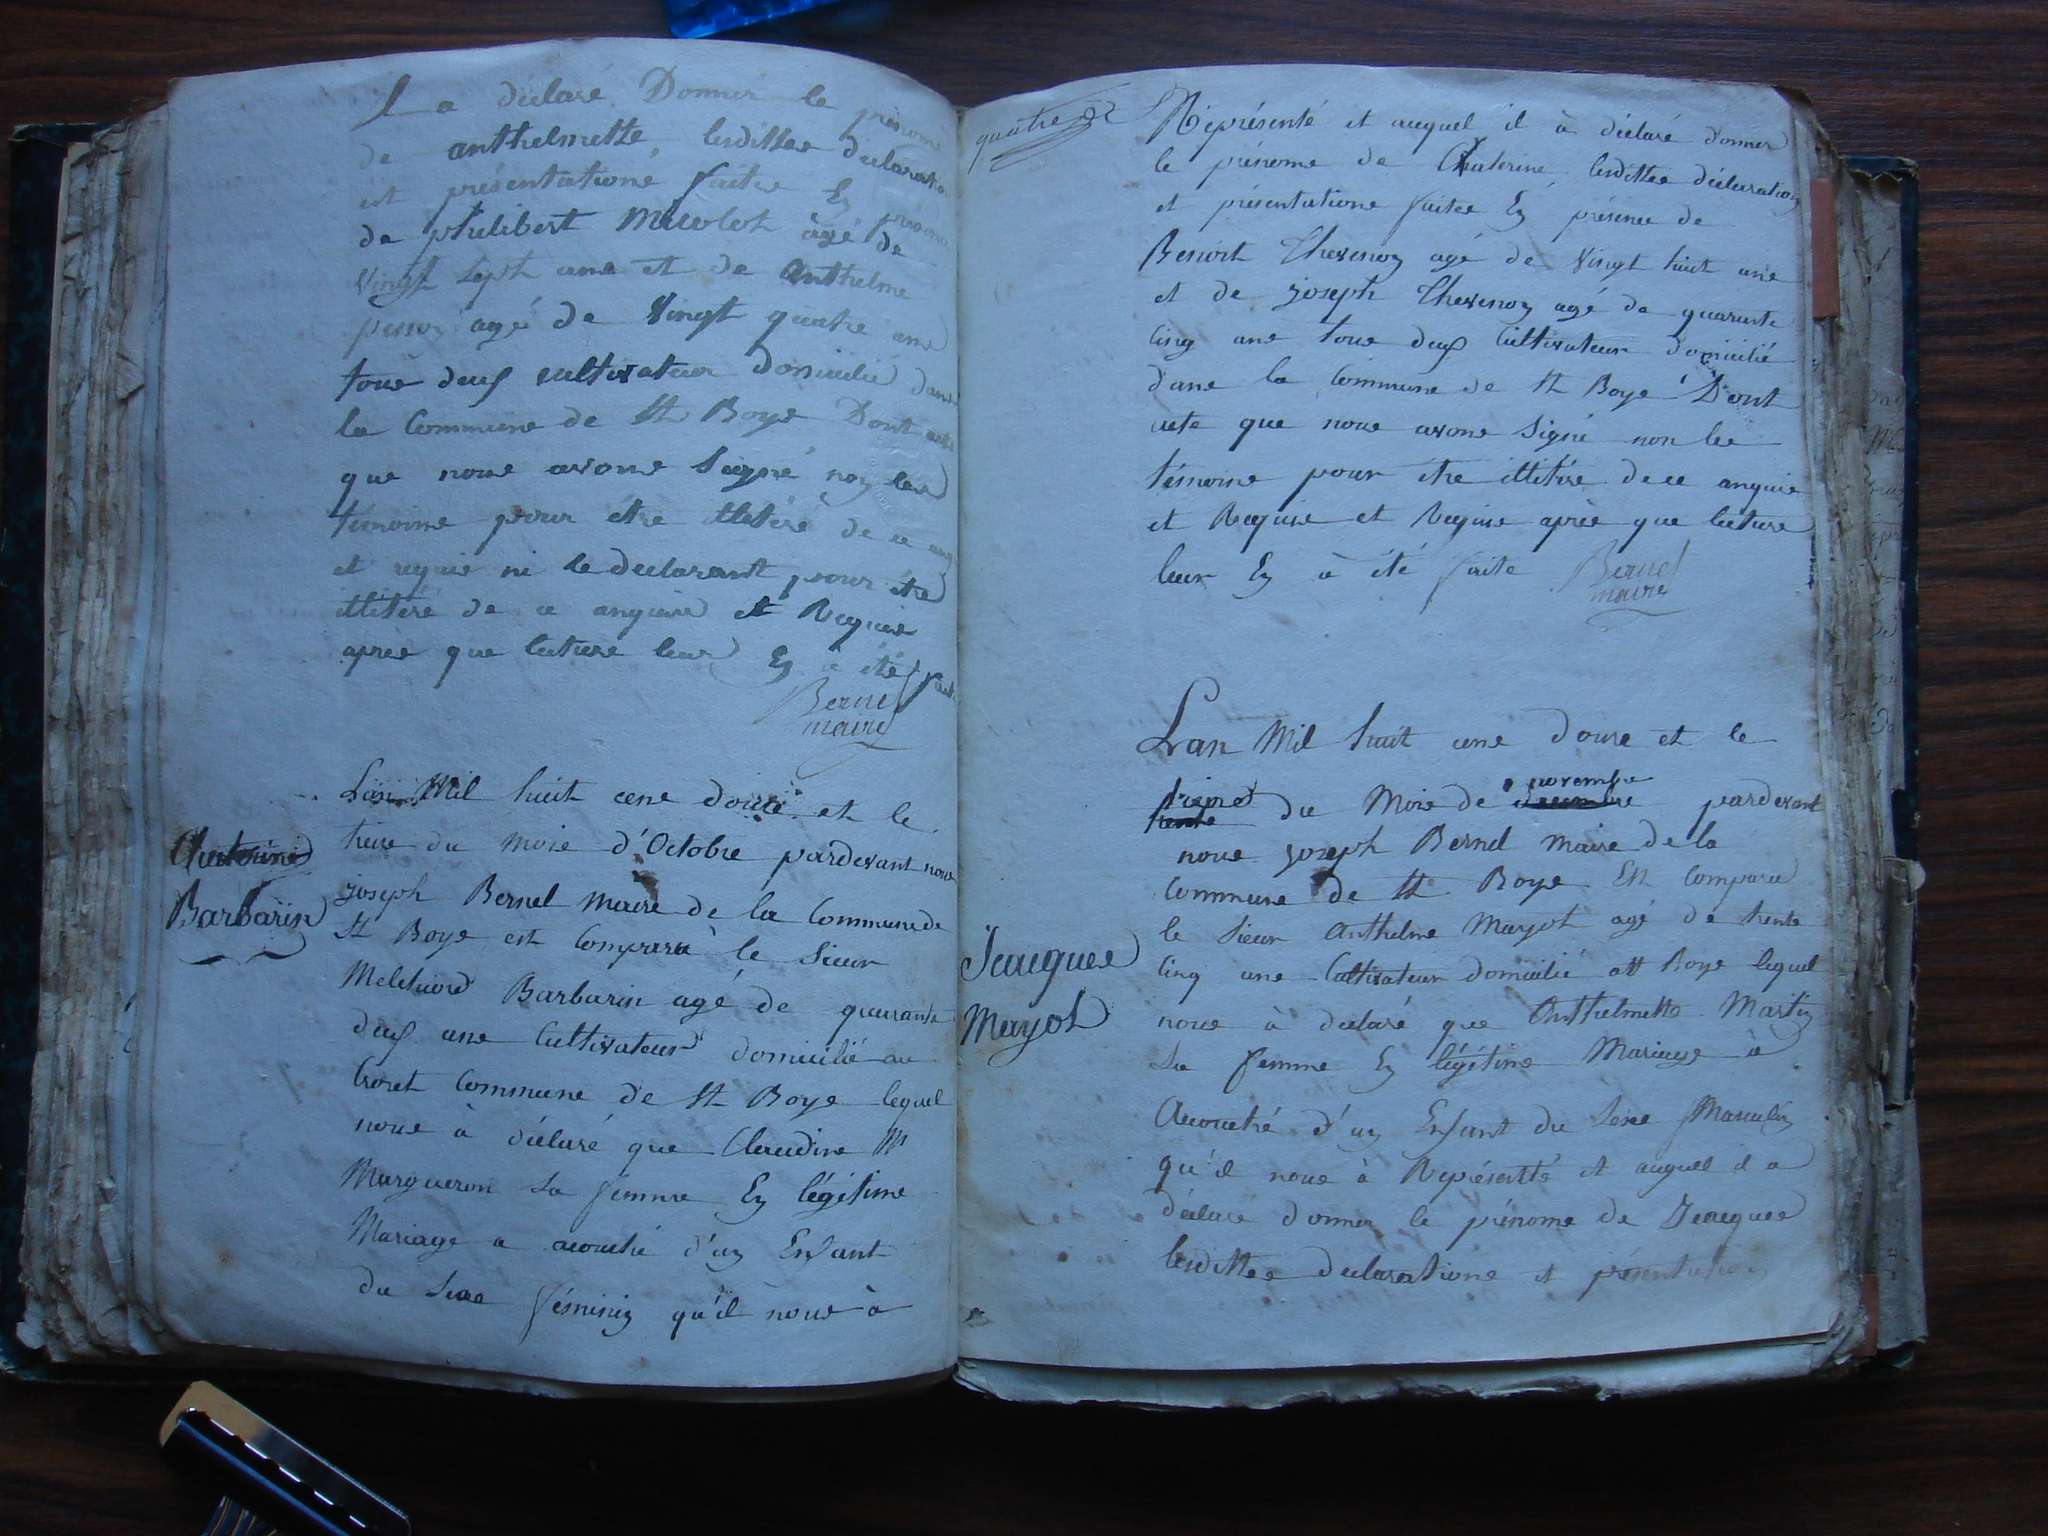 Il a déclaré Donner le prénome
de anthelmette, lesdittes declaration
est présentatione faite En présence
de philibert Micolot agé de
vingt sept ane et de Anthelme
agé de vingt quatre ane
toue deux cultivateur domicilié dane
la Commune de St Boye Dont acte
que noue avone Signé non les
témoine pour être illitéré de ce
et requie ni le declarant pour être
illitéré de ce anquie et Requie
aprèe que lecture leur En a été faite
Bernel
maire
Lan Mil huit cene douze et le
treize du moie d'Octobre pardevant noue
joseph Bernel maire de la Commune de
St Boye est Comparu le Sieur
Melchiord Barbarin agé de quarante
deux ane Cultivateur domicilié au
Croret Commune de St Boye lequel
noue à déclaré que Claudine M
Margueron Sa femme En légitime
Mariage a acouché d'un Enfant
du Sexe féminin qu'il noue à
Barbarin
quatre
Représenté et auquel il à déclaré donner
le prénome de Caterine lesdittes déclaration
et présentatione faitee En présence de
Benoit Thevenon agé de Vingt huit ane
et de joseph Thevenon agé de quarante
Cinq ane toue deux Cultivateur domicilié
dane la Commune de St Boye Dont
acte que noue avone Signé non lee
témoine pour être illitére de ce anquie
et Requie et Requie aprèe que lecture
leur En à été faite Bernel
maire
Lan Mil huit cene douze et le
novembre
du Moie de decembre pardevant
noue joseph Bernel maire de la
Commune de St Boye Est Comparu
le Sieur Anthelme Mayot agé de trente
Cinq ane Cultivateur domicilié att Boye lequel
noue à déclaré que Anthelmette Martin
Sa femme En légitime Mariage à
Acouché d'un Enfant du Sexe Masculin
qu'il noue à Représenté et auquel il a
déclaré donner le prénome de Jeacquee
lesdittee declaratione et présentation
Jeacquee
Mayot